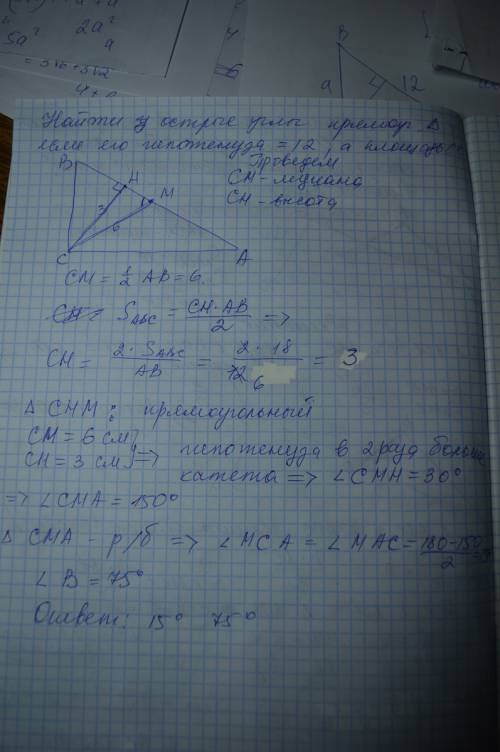 5a² 2a² a
B
a 12
Найти острые углы прямоуг. Δ
если его гипотенуза = 12, а площадь
Проведем
CM - медиана
CH - высота
B H M
3 6
C A
CM = 1/2 AB = 6.
S_ABC = CH·AB / 2 =>
CH = 2·S_ABC / AB = 2·18 / 12 6 = 3
Δ CHM: прямоугольный
CM = 6 см
CH = 3 см } => гипотенуза в 2 раза больше
катета => ∠CMH = 30°
=> ∠CMA = 150°
Δ CMA - р/б => ∠MCA = ∠MAC = 180-150 / 2 =
∠B = 75°
Ответ: 15° 75°